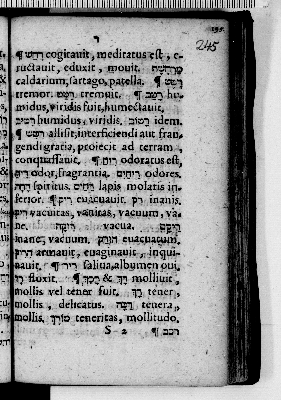 ר 195
245
¶ רחש cogitauit, meditatus est, e-
ructauit, eduxit, mouit. מרחשת
caldarium, sartago, patella. ¶ רטט
tremor. רטט tremuit. ¶ רטב hu-
midus, viridis fuit, humectauit.
רטיב humidus, viridis. רטוב idem.
¶ רטש allisit, interficiendi aut fran-
gendi gratia, proiecit ad terram,
conquassauit. ¶ ריח odoratus est,
ריח odor, fragrantia. ריחים odores.
רוח spiritus. רחים lapis molaris in-
ferior. ¶ ריק euacuauit. רק inanis.
ריק vacuitas, vanitas, vacuum, va-
ne. ריקה vacua. ריקם
inane, vacuum. euacuatum.
הריק armauit, euaginauit, inqui-
nauit. ¶ ריר saliua, albumen oui,
רר fluxit. ¶ רך & רכך molliuit,
mollis vel tener fuit. רך tener,
mollis, delicatus. רכה tenera,
mollis. מורך teneritas, mollitudo.
S 2 ¶ רכב